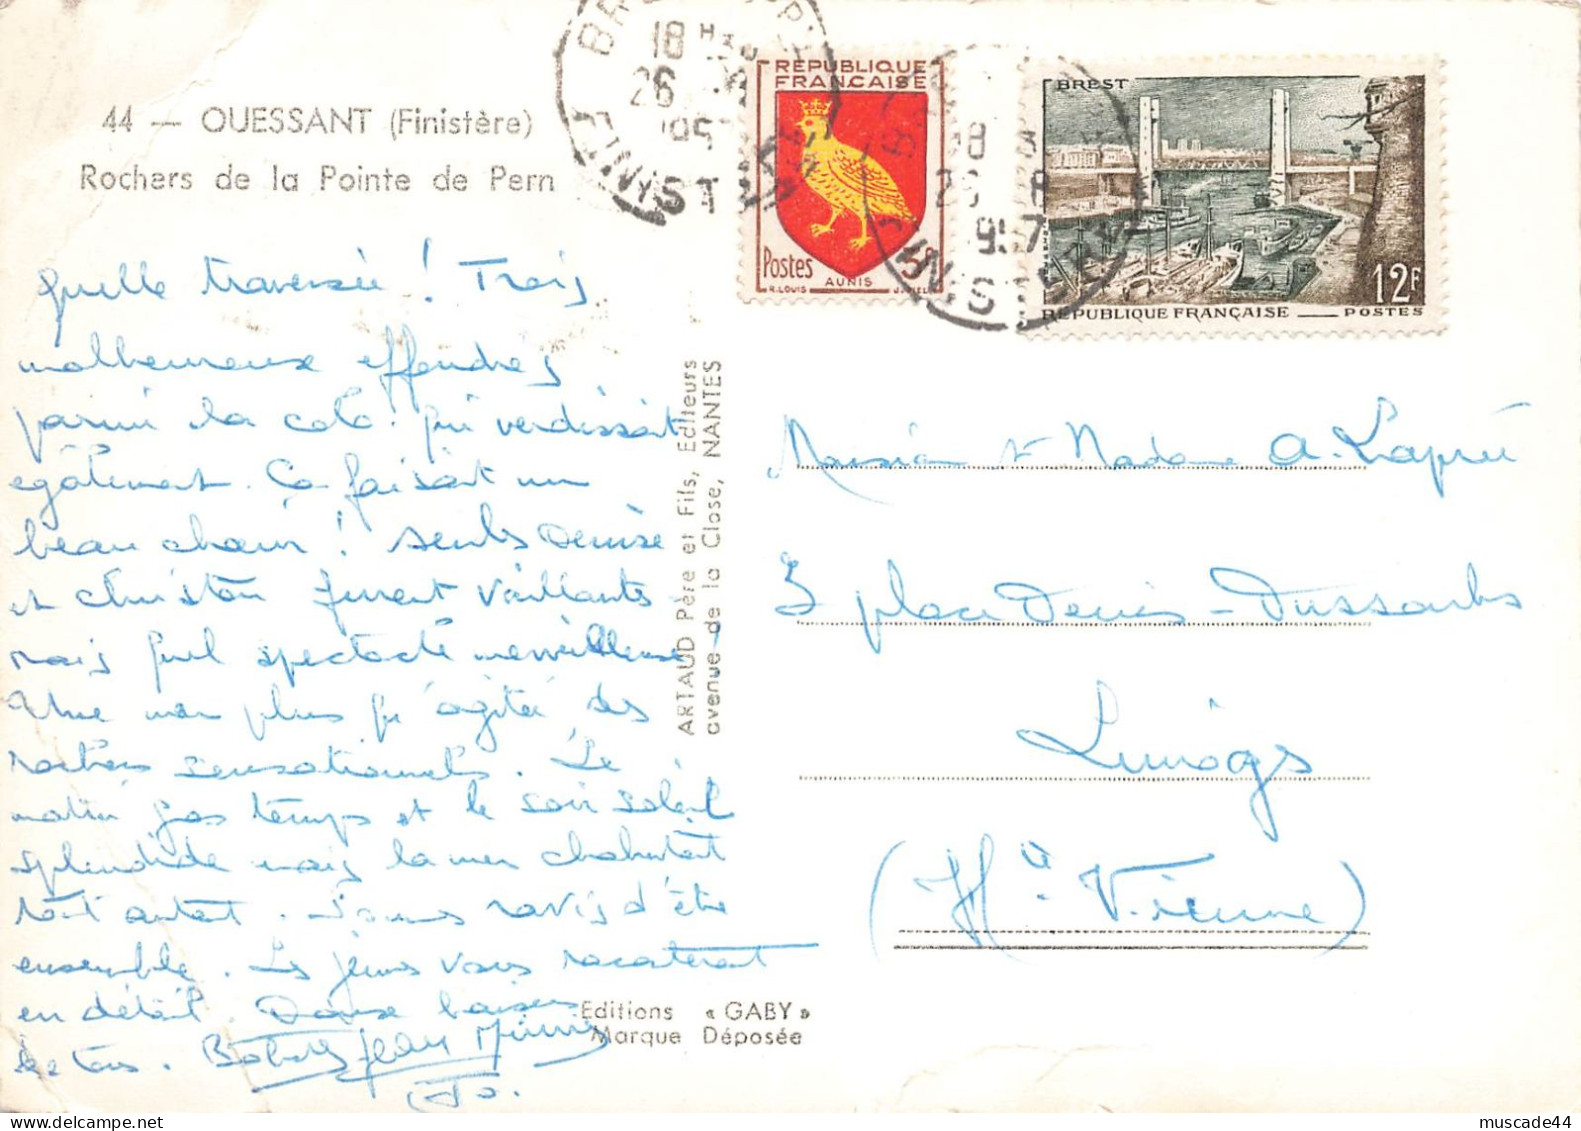 44 — OUESSANT (Finistère)
Rochers de la Pointe de Pern
Quelle traversée ! Trois
malheureux effondrés
parmi la colo. qui verdissait
également. Ça faisait un
beau chœur ! Seuls Denise
et Christian furent vaillants
mais quel spectacle merveilleux !
Une mer plus qu'agitée, des
rochers sensationnels. Le
matin gros temps et le soir soleil
splendide mais la mer chahutait
tout autant. Sommes ravis d'être
ensemble. Les jeunes vous raconteront
en détail. Doux baisers
de tous. Jean
ARTAUD Père et Fils, Editeurs
avenue de la Close, NANTES
Editions « GABY »
Marque Déposée
BREST
18 H
26
195
FINISTÈRE
RÉPUBLIQUE
FRANÇAISE
Postes
AUNIS
R. LOUIS
18
26 8
1957
FINISTÈRE
BREST
12F
RÉPUBLIQUE FRANÇAISE — POSTES
Monsieur et Madame A. Laprée
3 place Denis-Dussoubs
Limoges
(Hte Vienne)
muscade44